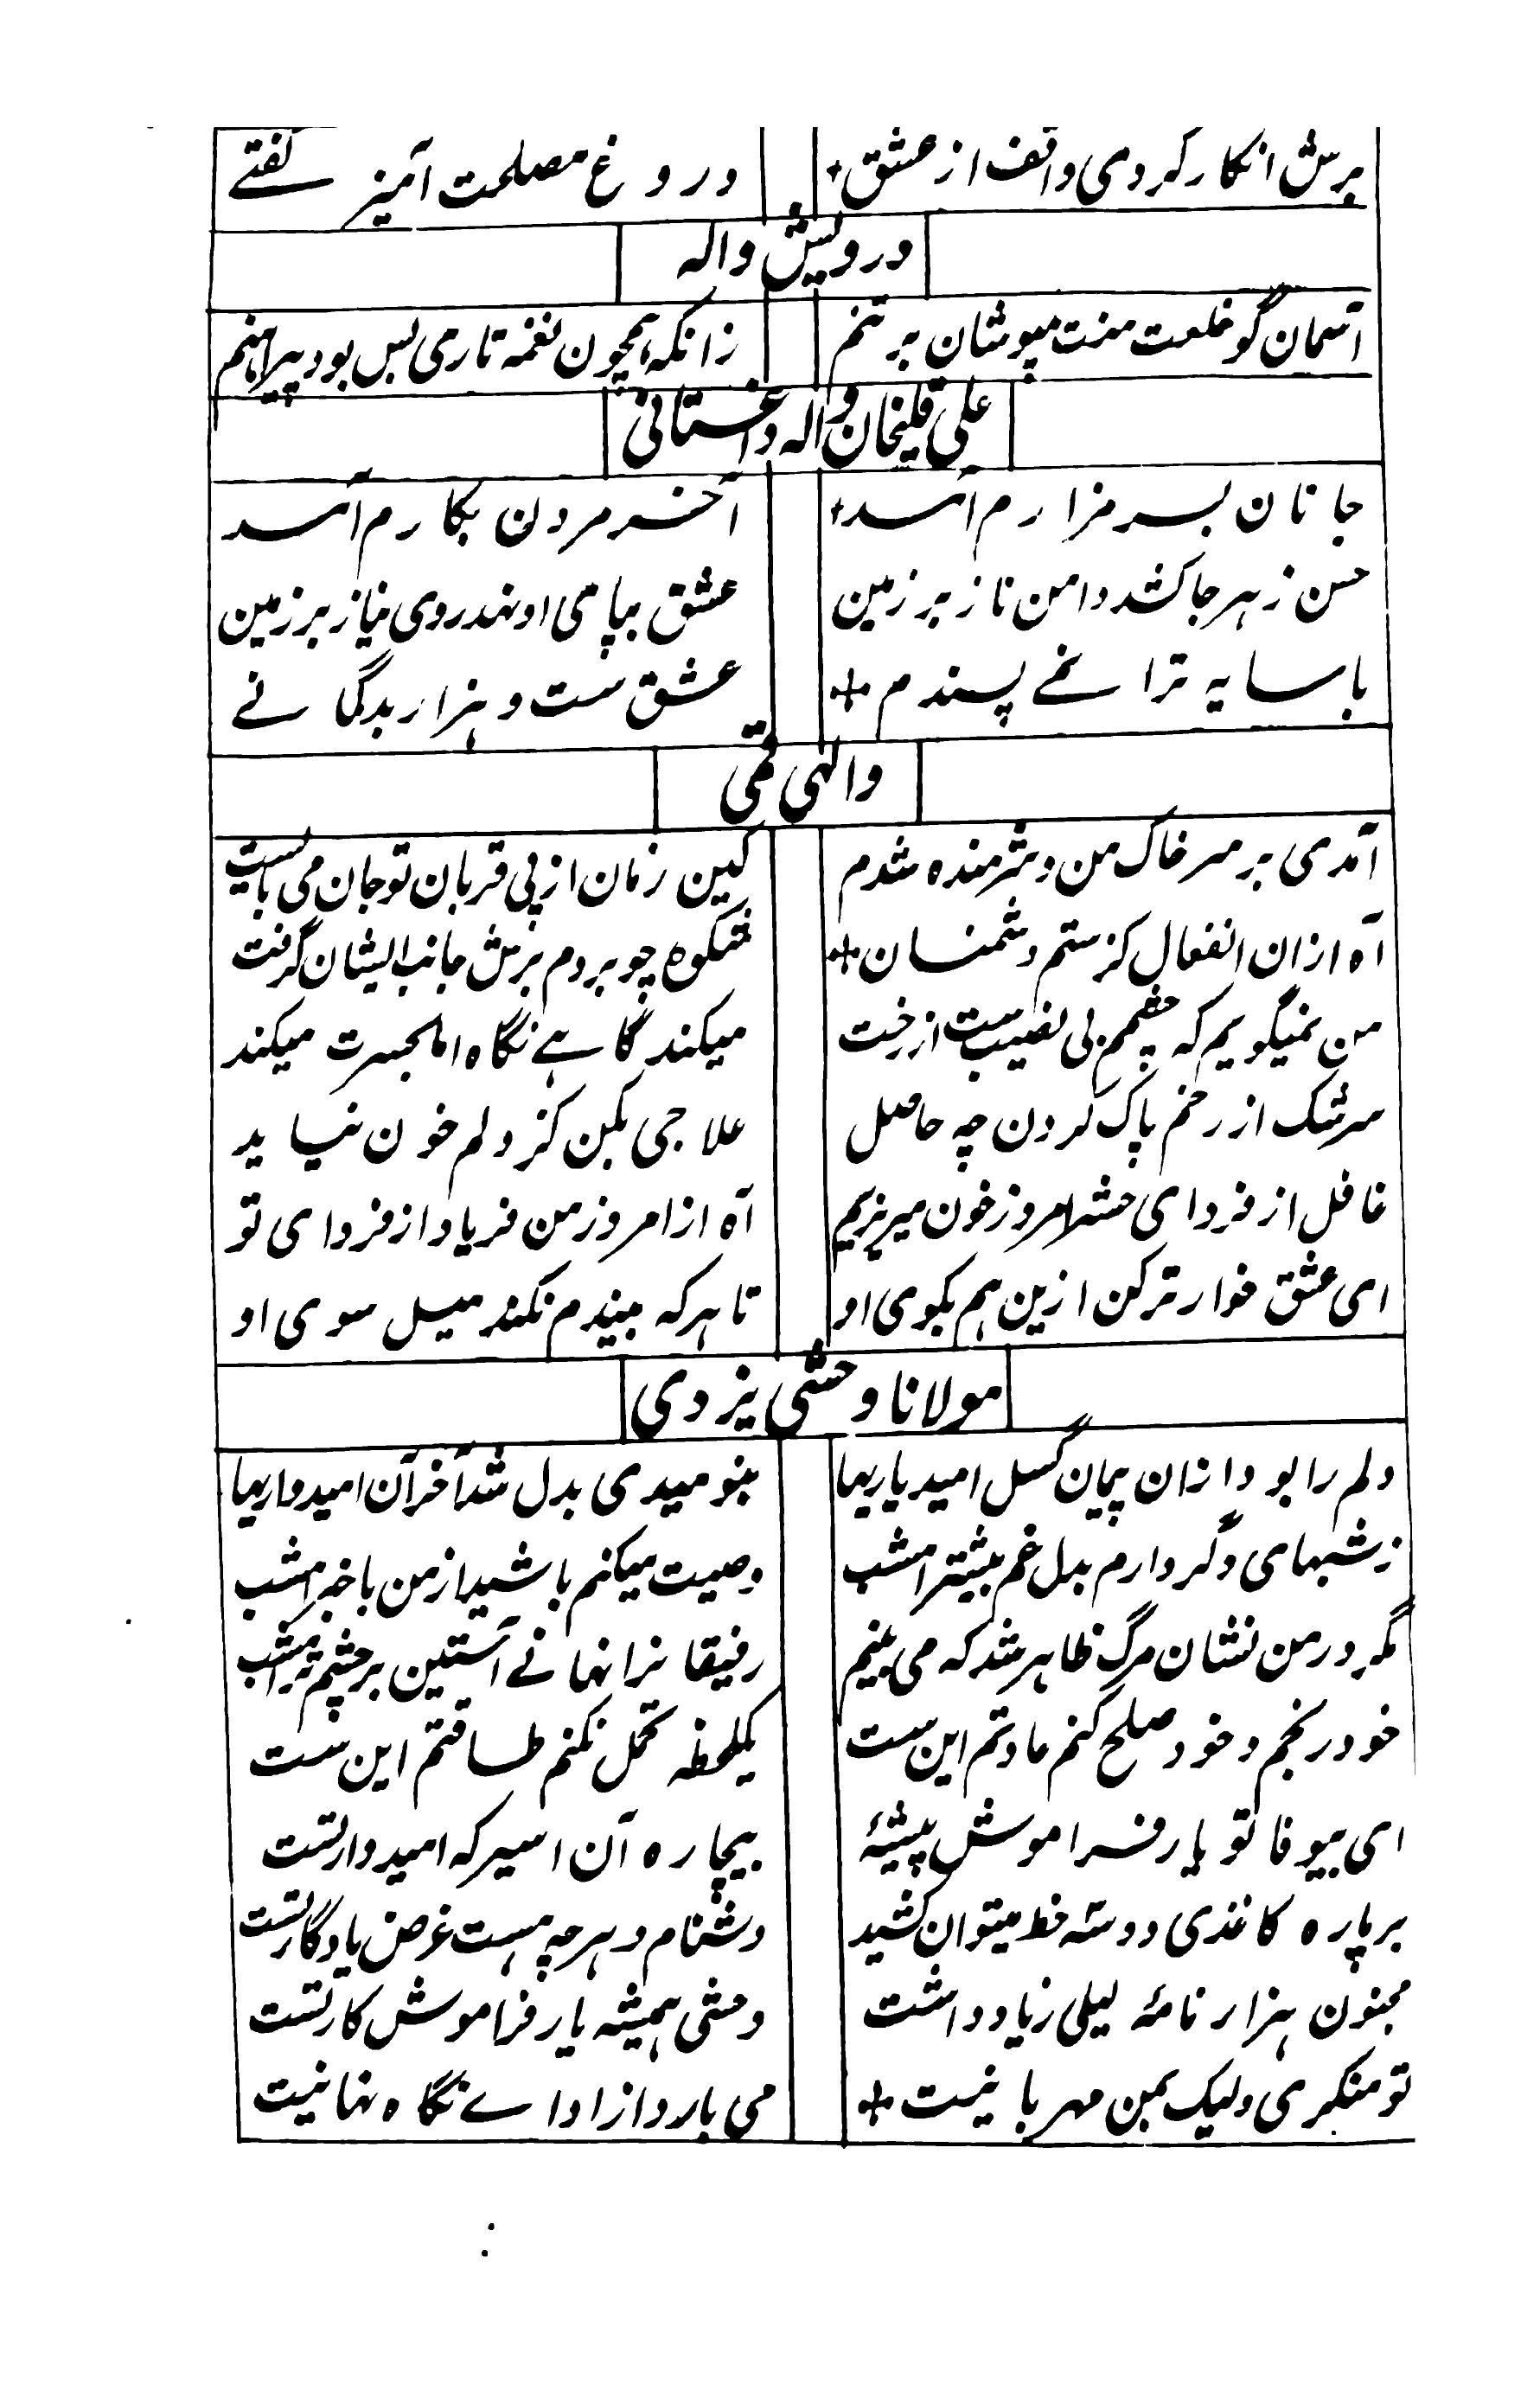 برش انکار کردی واقف از عشق + دروغ مصلحت آمیز گفتے
درویش واله
آسمان گو خلعت منت مپوشان بر تنم زانکه همچون نغمه تاری بس بود پیراهنم
علی قلیخان واله داغستانی
جانان بسر مزارم آمد + آخر مردن بکارم آمد
حسن ز هر جا کشد دامن ناز بر زمین عشق بپای او نهد روی نیاز بر زمین
با سایه ترا نمے پسندم + عشق ست و هزار بدگمانے
والهی قمی
آمدی بر سر خاک من و شرمنده شدم کین زمان از پی قربان تو جان می بایست
آه ازان انفعال کز ستم دشمنان + شکوه چو بردم برش جانب ایشان گرفت
من نمیگویم که چشمم بی نصیب ست از رخت میکند گاهے نگاه اما بحسرت میکند
سرشک از رخم پاک کردن چه حاصل علاجی بکن کز دلم خون نیاید
غافل از فردای حشر امروز خون میریزیم آه از امروز من فریاد از فردای تو
ای عشق خوارتر کن ازین هم بکوی او تا هر که بیندم نکند میل سوی او
مولانا وحشی یزدی
دلم را بود ازان پیمان گسل امید یاریها بنومیدی بدل شد آخر آن امیدواریها
ز شبهای دگر دارم بدل غم بیشتر امشب وصیت میکنم باشید از من باخبر امشب
مگر در من نشان مرگ ظاهر شد که می بینم رفیقانرا نهانے آستین بر چشم تر امشب
خود رنجم و خود صلح کنم عادتم این ست یکلحظه تحمل نکنم طاقتم این ست
ای بیوفا تو یار فراموش پیشۀ بیچاره آن اسیر که امیدوار تست
بر پاره کاغذی دو سه خط میتوان کشید دشنام و هر چه هست غرض یادگار تست
مجنون هزار نامۀ لیلی زیاد داشت وحشی همیشه یار فراموش کار تست
تو منکری ولیک بمن مهربانیت + می بارد از اداے نگاه نهانیت